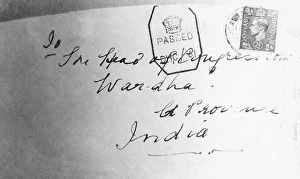 To
The Head of Congress
PASSED
Wardha.
C Province
India